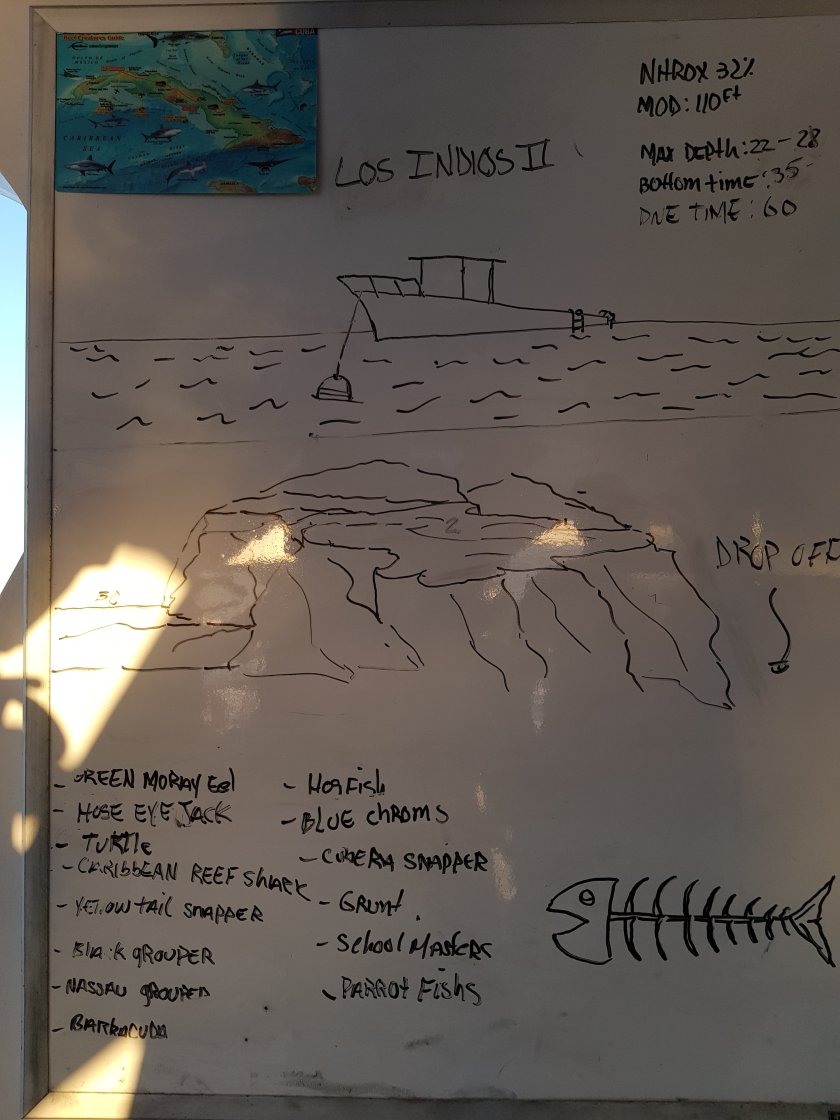 Reef Creatures Guide
CUBA
GULF OF MEXICO
CARIBBEAN SEA
JAMAICA
NHROX 32%
MOD: 110Ft
LOS INDIOS II
MAX DEPTH: 22 - 28
BOTTOM TIME: 35
DIVE TIME: 60
2
DROP OFF
- GREEN MORAY Eel
- HOSE EYE JACK
- TURTle
- CARIBBEAN REEF SHARK
- YELLOWTAIL SNAPPER
- BlACK GROUPER
- NASSAU GROUPER
- BARRACUDA
- HOGFISH
- BLUE ChROMS
- CUBERA SNAPPER
- GRUNT
- SCHOOL MASTERS
- PARROT FISHS